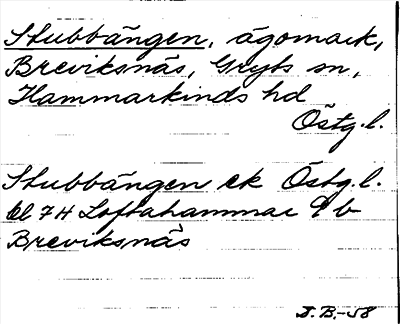 Stubbängen, ägomark,
Breviksnäs, Gryts sn,
Hammarkinds hd
Östg.l.
Stubbängen ek Östg.l.
bl 7H Loftahammar 9 b
Breviksnäs
D.B.-58